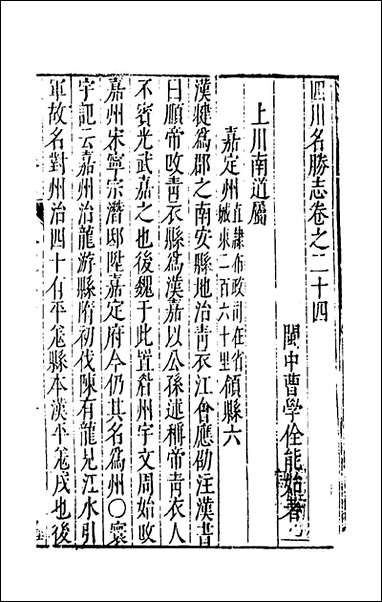 四川名勝志卷之二十四
閩中曹學佺能始著
上川南道屬
嘉定州直隸布政司在省城東二百六十里領縣六
漢犍爲郡之南安縣地治青衣江會應劭注漢書
曰順帝攺青衣縣爲漢嘉以公孫述稱帝青衣人
不賓光武嘉之也後魏于此置眉州宇文周始攺
嘉州宋寧宗潛邸陞嘉定府今仍其名爲州〇寰
宇記云嘉州治龍游縣隋初伐陳有龍見江水引
軍故名對州治四十有平羌縣本漢平羌戍也後